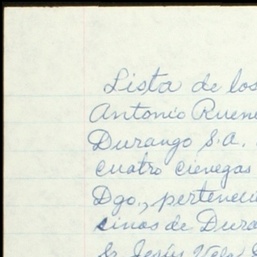 Lista de los
Antonio Rueni
Durango S.A.
cuatro cienegas
Dgo., pertenec
sinos de Dura
Sr. Jesús Vela